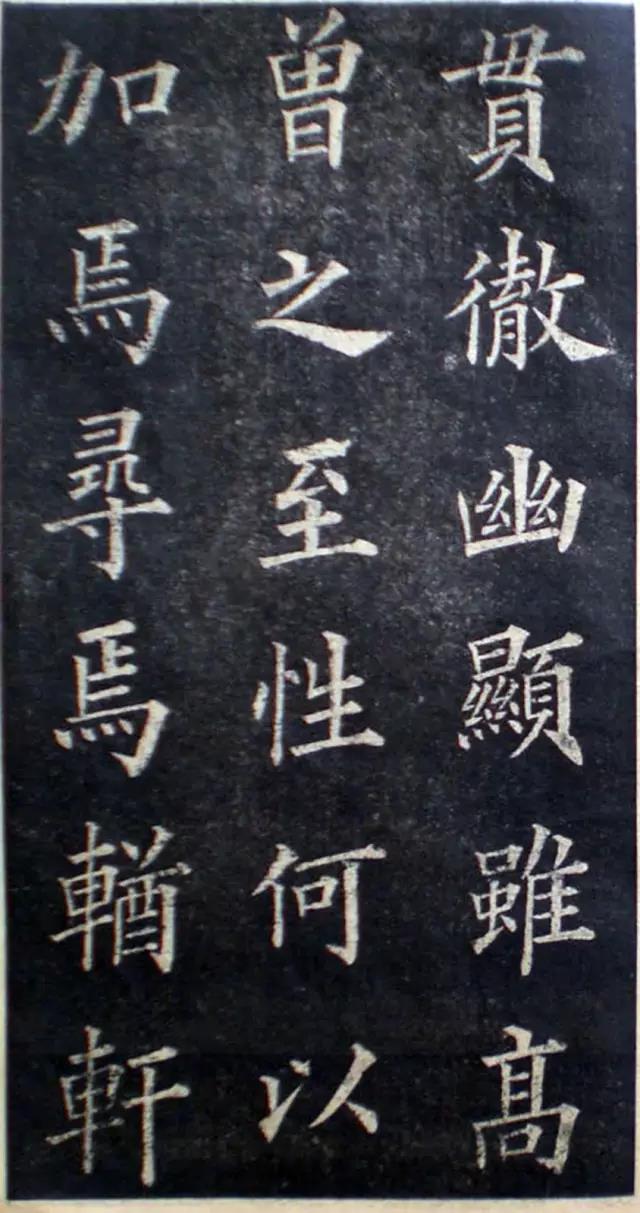 貫徹幽顯雖髙
曾之至性何以
加焉尋焉輶軒